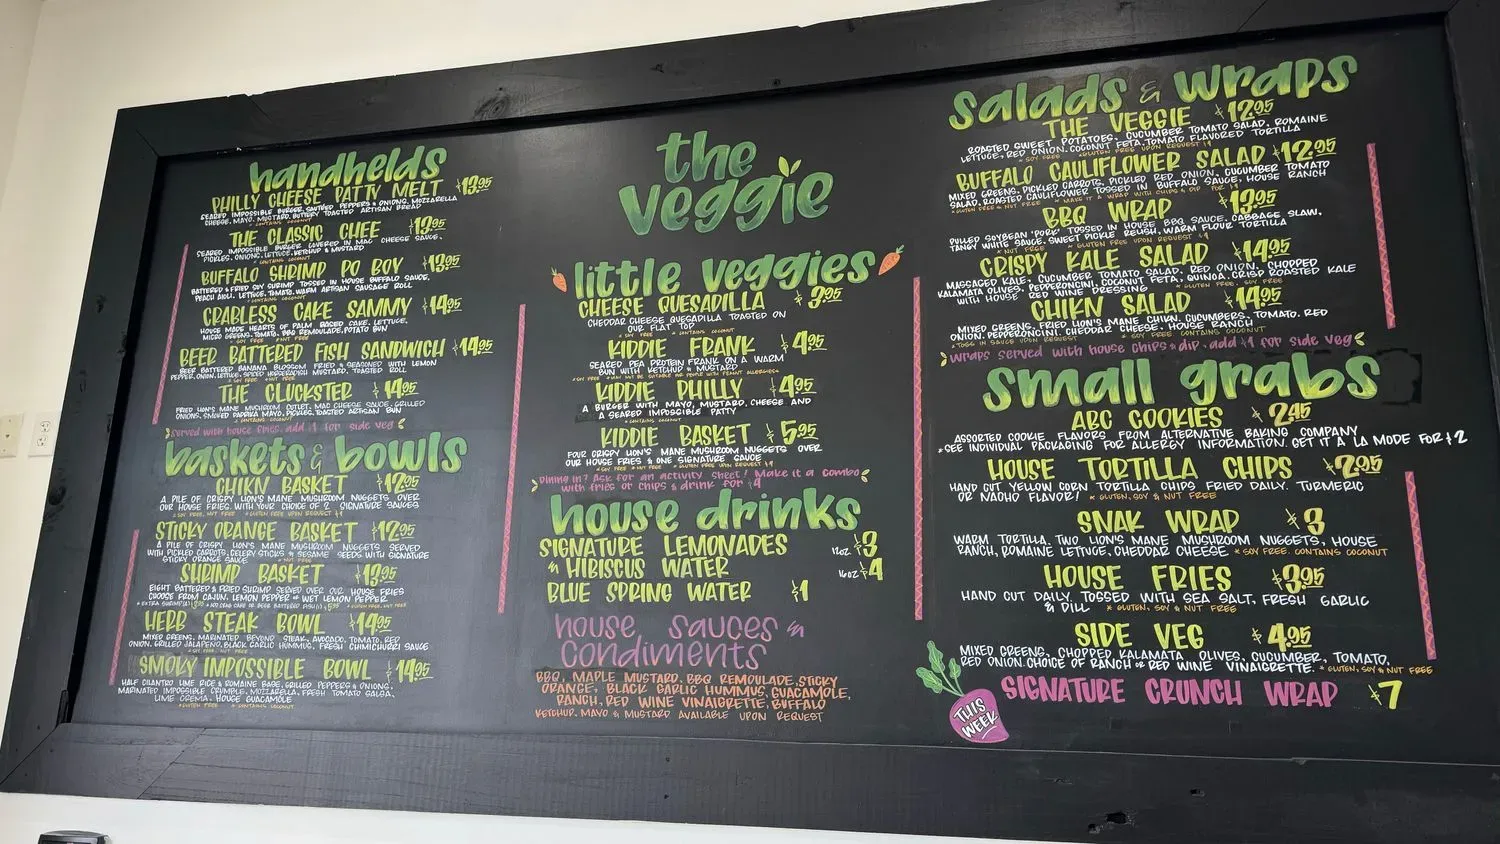 handhelds
PHILLY CHEESE PATTY MELT $13.95
SEARED IMPOSSIBLE BURGER, SAUTEED PEPPERS & ONIONS, MOZZARELLA
CHEESE, MAYO, MUSTARD, BUTTERY TOASTED ARTISAN BREAD
* CONTAINS COCONUT
THE CLASSIC CHEE $13.95
SEARED IMPOSSIBLE BURGER COVERED IN MAC CHEESE SAUCE,
PICKLES, ONIONS, LETTUCE, KETCHUP & MUSTARD
* CONTAINS COCONUT
BUFFALO SHRIMP PO BOY $13.95
BATTERED & FRIED SOY SHRIMP TOSSED IN HOUSE BUFFALO SAUCE,
PEACH AIOLI, LETTUCE, TOMATO, WARM ARTISAN SAUSAGE ROLL
* CONTAINS COCONUT
CRABLESS CAKE SAMMY $14.95
HOUSE MADE HEARTS OF PALM BASED CAKE, LETTUCE,
MICRO GREENS, TOMATO, BBQ REMOULADE, POTATO BUN
* SOY FREE * NUT FREE
BEER BATTERED FISH SANDWICH $14.95
BEER BATTERED BANANA BLOSSOM FRIED & SEASONED WITH LEMON
PEPPER, ONION, LETTUCE, SPICED HORSERADISH MUSTARD, TOASTED ROLL
* SOY FREE * NUT FREE
THE CLUCKSTER $14.95
FRIED LION'S MANE MUSHROOM CUTLET, MAC CHEESE SAUCE, GRILLED
ONIONS, SMOKED PAPRIKA MAYO, PICKLES, TOASTED ARTISAN BUN
* CONTAINS COCONUT
served with house fries. add $1 for side veg
baskets & bowls
CHIKN BASKET $12.95
A PILE OF CRISPY LION'S MANE MUSHROOM NUGGETS OVER
OUR HOUSE FRIES. WITH YOUR CHOICE OF 2 SIGNATURE SAUCES
* SOY FREE * NUT FREE * GLUTEN FREE UPON REQUEST $1
STICKY ORANGE BASKET $12.95
A PILE OF CRISPY LION'S MANE MUSHROOM NUGGETS SERVED
WITH PICKLED CARROTS, CELERY STICKS & SESAME SEEDS WITH SIGNATURE
STICKY ORANGE SAUCE * NUT FREE
SHRIMP BASKET $13.95
EIGHT BATTERED & FRIED SHRIMP SERVED OVER OUR HOUSE FRIES
CHOOSE FROM CAJUN, LEMON PEPPER OR WET LEMON PEPPER
HERB STEAK BOWL $14.95
MIXED GREENS, MARINATED BEYOND STEAK, AVOCADO, TOMATO, RED
ONION, GRILLED JALAPENO, BLACK GARLIC HUMMUS, FRESH CHIMICHURRI SAUCE
* SOY FREE * NUT FREE
SMOKY IMPOSSIBLE BOWL $14.95
HALF CILANTRO LIME RICE & ROMAINE BASE, GRILLED PEPPERS & ONIONS,
MARINATED IMPOSSIBLE CRUMBLE, MOZZARELLA, FRESH TOMATO SALSA,
LIME CREMA, HOUSE GUACAMOLE
* GLUTEN FREE * CONTAINS COCONUT
the
veggie
little veggies
CHEESE QUESADILLA $3.95
CHEDDAR CHEESE QUESADILLA TOASTED ON
OUR FLAT TOP
* SOY FREE * CONTAINS COCONUT
KIDDIE FRANK $4.95
SEARED PEA PROTEIN FRANK ON A WARM
BUN WITH KETCHUP & MUSTARD
* SOY FREE * MAY NOT BE SUITABLE FOR PEOPLE WITH PEANUT ALLERGIES
KIDDIE PHILLY $4.95
A BURGER WITH MAYO, MUSTARD, CHEESE AND
A SEARED IMPOSSIBLE PATTY
* CONTAINS COCONUT
KIDDIE BASKET $5.95
FOUR CRISPY LION'S MANE MUSHROOM NUGGETS OVER
OUR HOUSE FRIES & ONE SIGNATURE SAUCE
* SOY FREE * NUT FREE * GLUTEN FREE UPON REQUEST $1
Dining in? Ask for an activity sheet! Make it a combo
with fries or chips & drink for $4
house drinks
SIGNATURE LEMONADES 12oz. $3
n HIBISCUS WATER 16oz. $4
BLUE SPRING WATER $1
house sauces n
condiments
BBQ, MAPLE MUSTARD, BBQ REMOULADE, STICKY
ORANGE, BLACK GARLIC HUMMUS, GUACAMOLE,
RANCH, RED WINE VINAIGRETTE, BUFFALO
KETCHUP, MAYO & MUSTARD AVAILABLE UPON REQUEST
salads & wraps
THE VEGGIE $12.95
ROASTED SWEET POTATOES, CUCUMBER TOMATO SALAD, ROMAINE
LETTUCE, RED ONION, COCONUT FETA, TOMATO FLAVORED TORTILLA
* SOY FREE * GLUTEN FREE UPON REQUEST $1
BUFFALO CAULIFLOWER SALAD $12.95
MIXED GREENS, PICKLED CARROTS, PICKLED RED ONION, CUCUMBER TOMATO
SALAD, ROASTED CAULIFLOWER TOSSED IN BUFFALO SAUCE, HOUSE RANCH
* GLUTEN FREE * NUT FREE * MAKE IT A WRAP WITH CHIPS & DIP FOR $1
BBQ WRAP $13.95
PULLED SOYBEAN 'PORK' TOSSED IN HOUSE BBQ SAUCE, CABBAGE SLAW,
TANGY WHITE SAUCE, SWEET PICKLE RELISH, WARM FLOUR TORTILLA
* NUT FREE * GLUTEN FREE UPON REQUEST $1
CRISPY KALE SALAD $14.95
MASSAGED KALE, CUCUMBER TOMATO SALAD, RED ONION, CHOPPED
KALAMATA OLIVES, PEPPERONCINI, COCONUT FETA, QUINOA, CRISP ROASTED KALE
WITH HOUSE RED WINE DRESSING * GLUTEN FREE, SOY FREE
CHIKN SALAD $14.95
MIXED GREENS, FRIED LION'S MANE CHIKN, CUCUMBERS, TOMATO, RED
ONION, PEPPERONCINI, CHEDDAR CHEESE, HOUSE RANCH
* TOSS IN SAUCE UPON REQUEST * SOY FREE CONTAINS COCONUT
wraps served with house chips & dip. add $1 for side veg
small grabs
ABC COOKIES $2.45
ASSORTED COOKIE FLAVORS FROM ALTERNATIVE BAKING COMPANY
*SEE INDIVIDUAL PACKAGING FOR ALLERGY INFORMATION. GET IT A LA MODE FOR $2
HOUSE TORTILLA CHIPS $2.95
HAND CUT YELLOW CORN TORTILLA CHIPS FRIED DAILY. TURMERIC
OR NACHO FLAVOR! * GLUTEN, SOY & NUT FREE
SNAK WRAP $3
WARM TORTILLA, TWO LION'S MANE MUSHROOM NUGGETS, HOUSE
RANCH, ROMAINE LETTUCE, CHEDDAR CHEESE * SOY FREE. CONTAINS COCONUT
HOUSE FRIES $3.95
HAND CUT DAILY. TOSSED WITH SEA SALT, FRESH GARLIC
& DILL * GLUTEN, SOY & NUT FREE
SIDE VEG $4.95
MIXED GREENS, CHOPPED KALAMATA OLIVES, CUCUMBER, TOMATO,
RED ONION. CHOICE OF RANCH OR RED WINE VINAIGRETTE. * GLUTEN, SOY & NUT FREE
THIS
WEEK
SIGNATURE CRUNCH WRAP $7